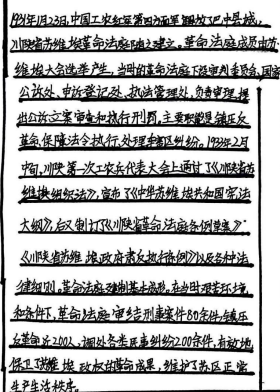 1933年1月23日,中国工农红军第四方面军解放了巴中县城,
川陕省苏维埃革命法庭随之建立。革命法庭成员由苏
维埃大会选举产生,当时的革命法庭下设审判委员会,国家
公诉处、申诉登记处、执法管理处,负责受理、提
出公诉立案审查和执行刑罚,主要职能是镇压反
革命,保障法令执行,处理苏区纠纷。1933年2月
中旬,川陕第一次工农兵代表大会上通过了《川陕省苏
维埃组织法》,宣布了《中华苏维埃共和国宪法
大纲》,后又制订了《川陕省革命法庭条例草案》
《川陕省苏维埃政府肃反执行条例》以及各种法
律细则,革命法庭建制基本完备,在当时艰苦环境
和条件下,革命法庭审结刑事案件80余件,镇压
反革命近200人,调处各类民事纠纷200余件,有效地
保卫了苏维埃政权的革命成果,维护了苏区正常
生产生活秩序。